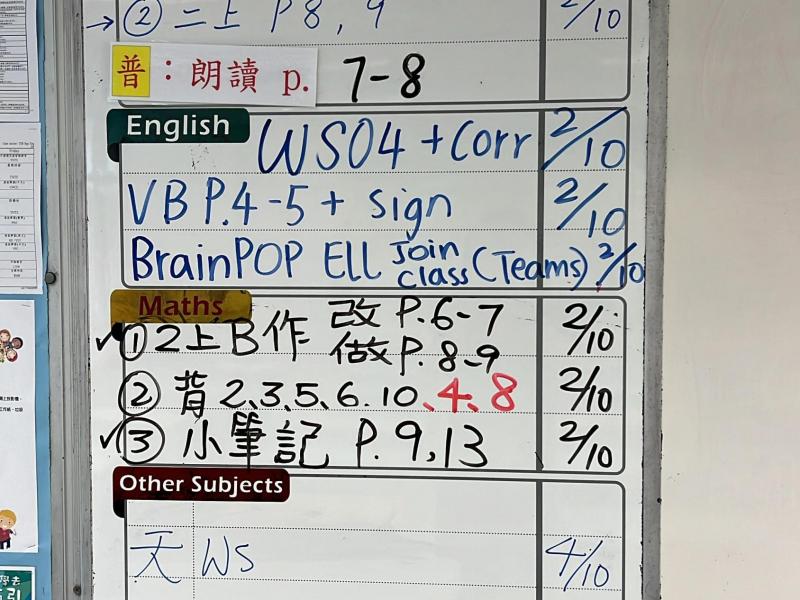 → ② 二上 P 8, 9 2/10
普：朗讀 p. 7-8
English
WS04 + Corr 2/10
VB P.4-5 + sign 2/10
BrainPOP ELL Join class (Teams) 2/10
Maths
✓ ① 2上B作 改 P.6-7 做 P.8、9 2/10
② 背 2、3、5、6、10、4、8 2/10
✓ ③ 小筆記 P. 9, 13 2/10
Other Subjects
天 WS 4/10